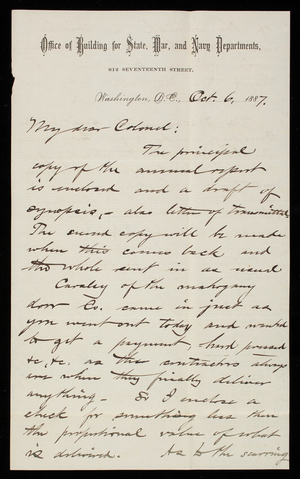 Office of Building for State, War, and Navy Departments,
612 SEVENTEENTH STREET,
Washington, D.C., Oct. 6, 1887.
My dear Colonel:
The principal
copy of the annual report
is enclosed and a draft of
synopsis, – also letter of transmittal
The second copy will be made
when this comes back and
the whole sent in as usual
Cavaley of the mahogany
door Co. came in just as
you went out today and wanted
to get a payment, hard pressed
&c, &c. as the contractors always
are when they finally deliver
anything – So I enclose a
check for something less than
the proportional value of what
is delivered. As to the